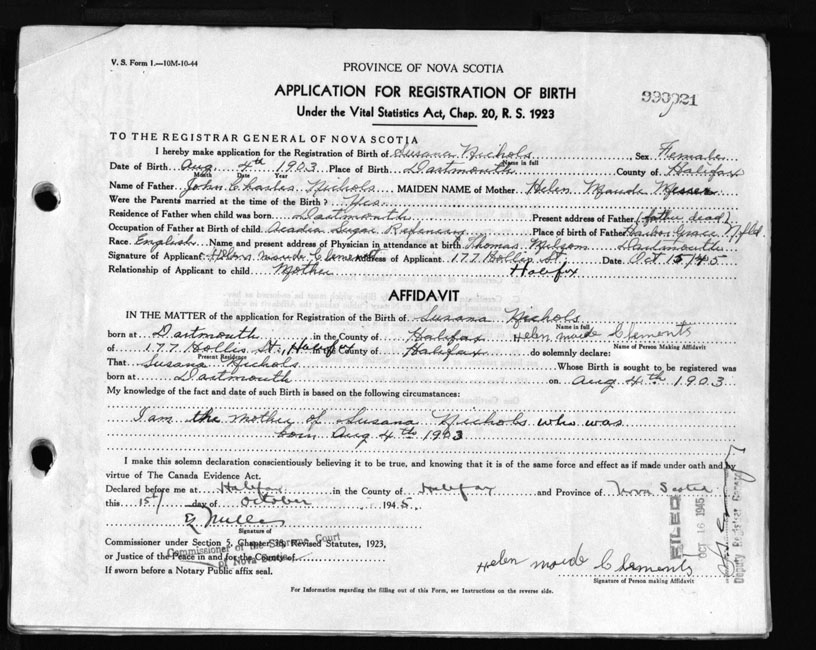 V. S. Form 1.—10M-10-44
PROVINCE OF NOVA SCOTIA
APPLICATION FOR REGISTRATION OF BIRTH
Under the Vital Statistics Act, Chap. 20, R. S. 1923
TO THE REGISTRAR GENERAL OF NOVA SCOTIA
I hereby make application for the Registration of Birth of Susana Nichols, Sex Female
Name in full
Date of Birth Aug. 4th 1903 Place of Birth Dartmouth County of Halifax
Month Date Year
Name of Father John Charles Nichols MAIDEN NAME of Mother Helen Maude
Were the Parents married at the time of the Birth? Yes
Residence of Father when child was born Dartmouth Present address of Father (father dead)
Occupation of Father at Birth of child Acadia Sugar Refinery Place of birth of Father Harbor Grace Nfld
Race English Name and present address of Physician in attendance at birth Thomas Dartmouth
Signature of Applicant Helen maude Clements Address of Applicant 177 Hollis St. Date Oct 15/45
Relationship of Applicant to child Mother Halifax
AFFIDAVIT
IN THE MATTER of the application for Registration of the Birth of Susana Nichols
Name in full
born at Dartmouth in the County of Halifax Helen maide Clements
Name of Person Making Affidavit
of 177 Hollis St, Halifax in the County of Halifax do solemnly declare:
Present Residence
That Susana Nichols Whose Birth is sought to be registered was
born at Dartmouth on Aug 4th 1903
My knowledge of the fact and date of such Birth is based on the following circumstances:
I am the mother of Susana Nichols who was
born Aug 4th 1903
I make this solemn declaration conscientiously believing it to be true, and knowing that it is of the same force and effect as if made under oath and by
virtue of The Canada Evidence Act.
Declared before me at Halifax in the County of Halifax and Province of Nova Scotia
this 15th day of October 1945.
Signature of
Commissioner under Section 5, Chapter 38, Revised Statutes, 1923,
Commissioner of the Supreme Court
or Justice of the Peace in and for the County of
of Nova Scotia
If sworn before a Notary Public affix seal.
FILED
OCT 16 1945
Helen maide Clements
Signature of Person Making Affidavit
For Information regarding the filling out of this Form, see Instructions on the reverse side.